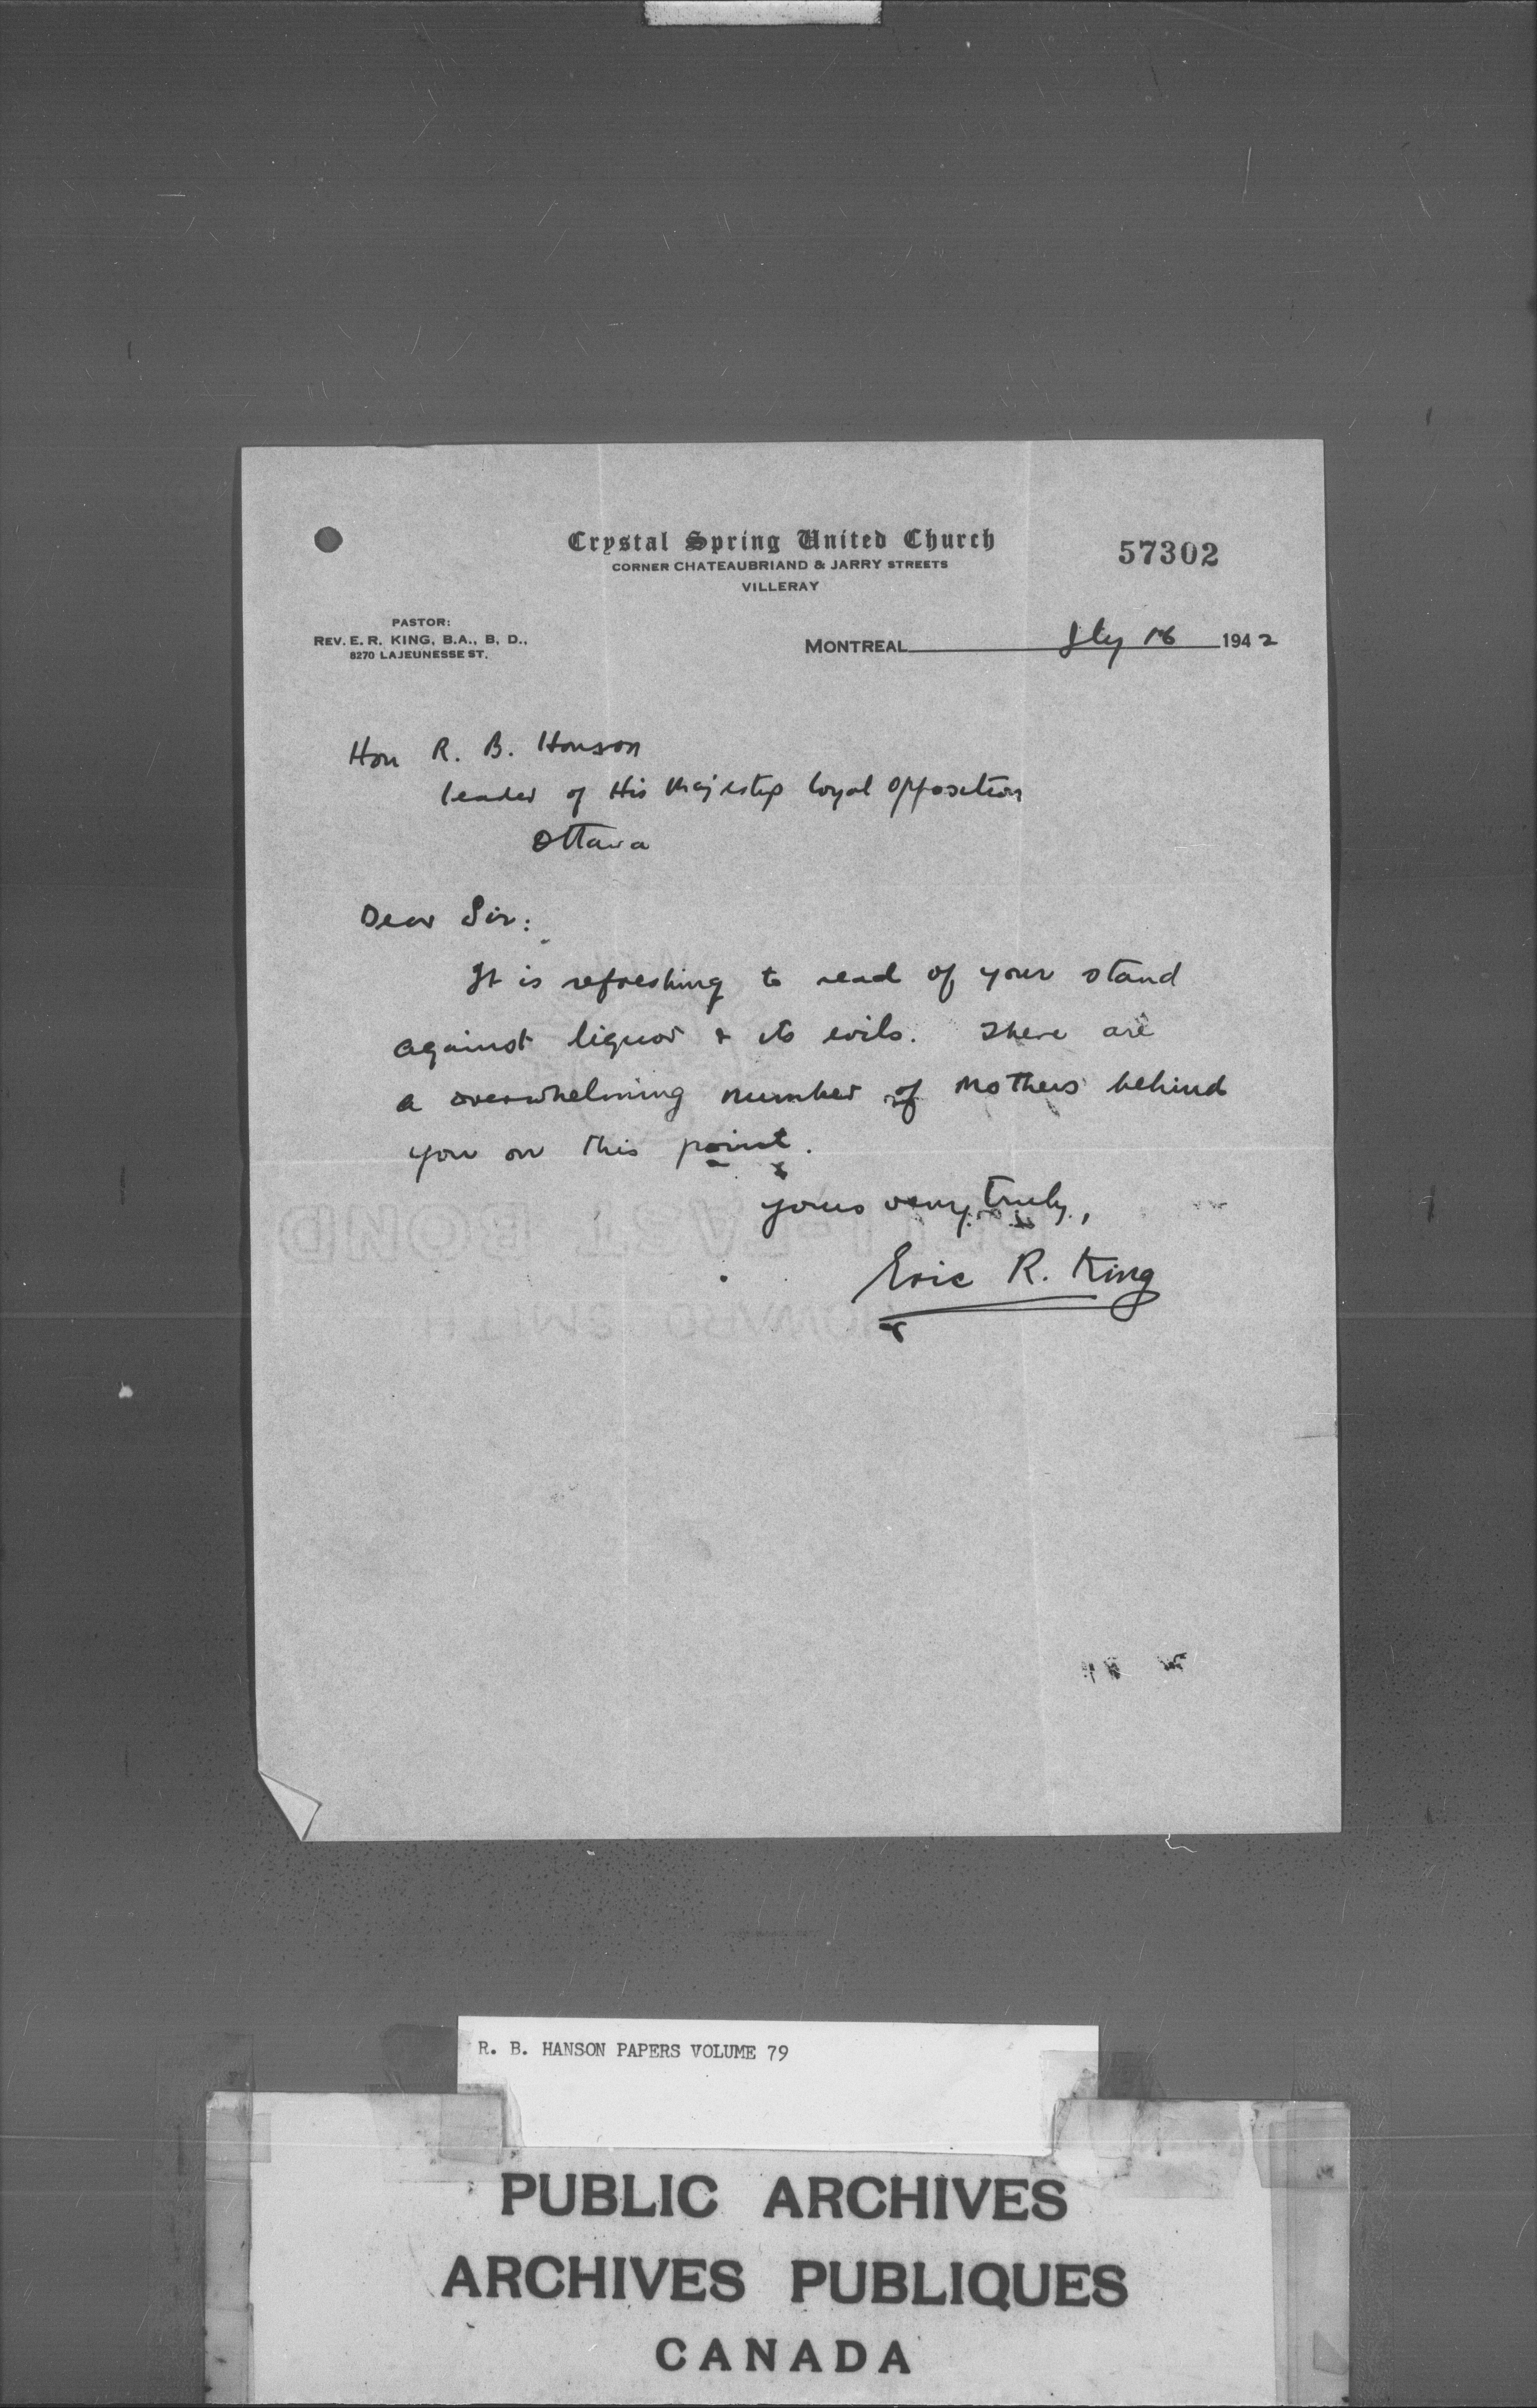 Crystal Spring United Church
CORNER CHATEAUBRIAND & JARRY STREETS
VILLERAY
57302
PASTOR:
REV. E. R. KING, B.A., B. D.,
8270 LAJEUNESSE ST.
MONTREAL 16 1942
Hon R. B. Hanson
leader of His Majestys loyal opposition
Ottawa
Dear Sir:
It is refreshing to read of your stand
against liquor & its evils. There are
a overwhelming number of Mothers behind
you on this point.
yours very truly,
Eric R. King
R. B. HANSON PAPERS VOLUME 79
PUBLIC ARCHIVES
ARCHIVES PUBLIQUES
CANADA